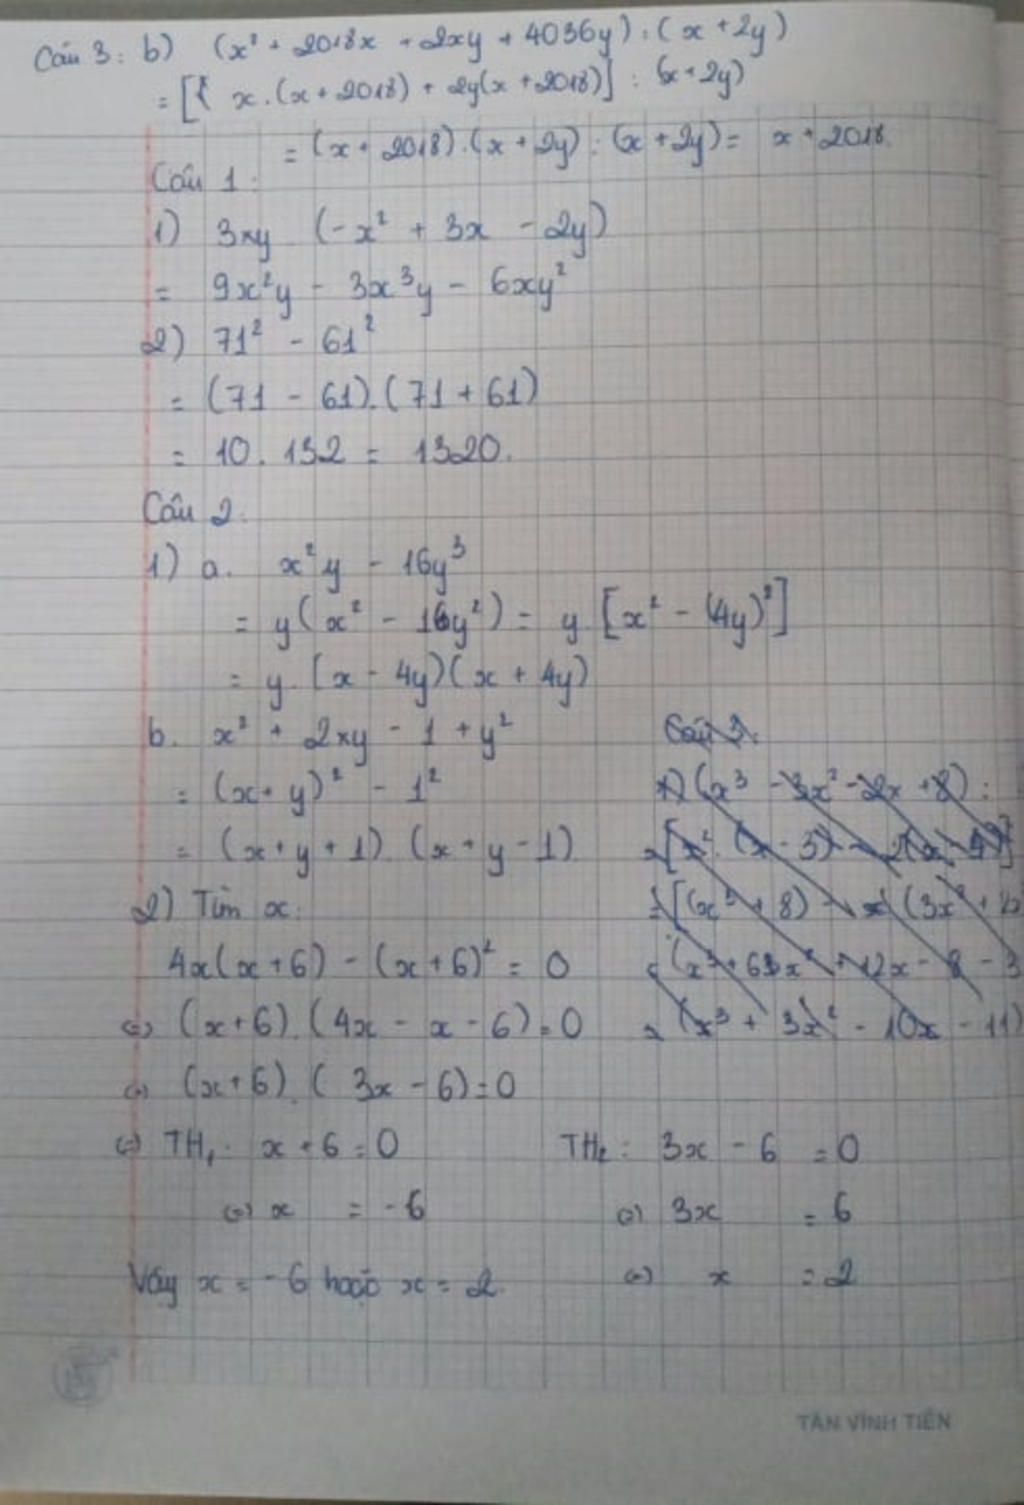 Câu 3: b) (x² + 2018x + 2xy + 4036y) : (x + 2y)
= [ x.(x + 2018) + 2y(x + 2018)] : (x + 2y)
= (x + 2018).(x + 2y) : (x + 2y) = x + 2018.
Câu 1:
1) 3xy (-x² + 3x - 2y)
= 9x²y - 3x³y - 6xy²
2) 71² - 61²
= (71 - 61).(71 + 61)
= 10. 132 = 1320.
Câu 2.
1) a. x²y - 16y³
= y(x² - 16y²) = y [x² - (4y)²]
= y. (x - 4y)(x + 4y)
b. x² + 2xy - 1 + y²
= (x + y)² - 1²
= (x + y + 1). (x + y - 1)
2) Tìm x:
4x(x + 6) - (x + 6)² = 0
(=) (x + 6). (4x - x - 6) = 0
(=) (x + 6). (3x - 6) = 0
(=) TH₁: x + 6 = 0
(=) x = -6
Vậy x = -6 hoặc x = 2.
Câu 3:
(x³ - 3x² - 2x + 8) :
= (x³ + 3x² - 10x - 11)
TH₂: 3x - 6 = 0
(=) 3x = 6
(=) x = 2
TÂN VĨNH TIẾN